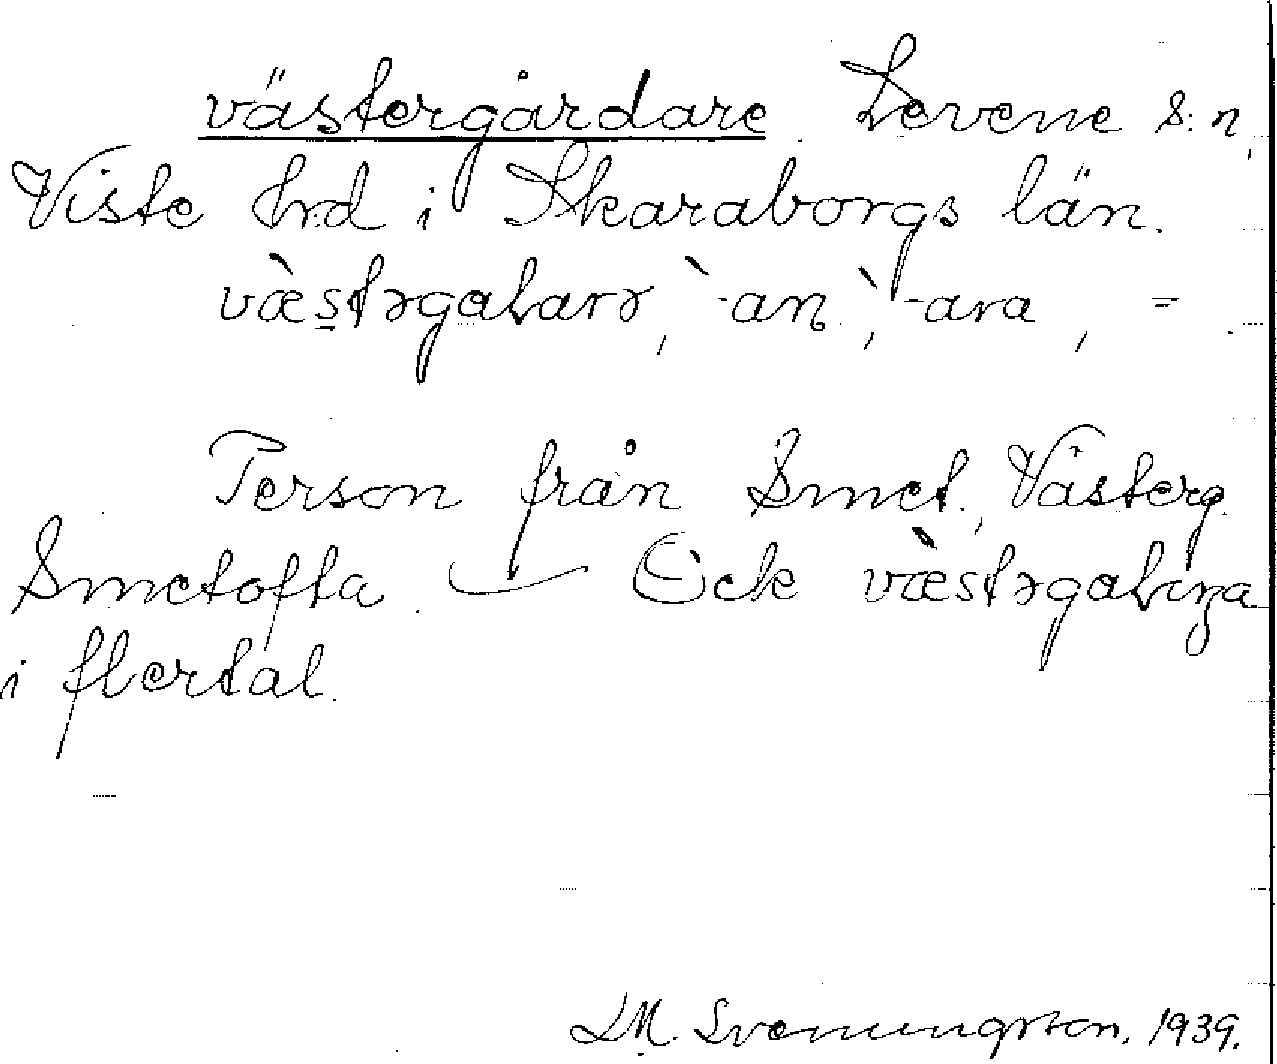 västergårdare. Levene s:n,
Viste hrd i Skaraborgs län.
væ̀strgaLarɂ, -̀an, -̀ara, =.
Person från Smet., Västerg.
Smetofta. — Ock væ̀stɂgaLiŋa
i flertal.
LM. Svenungsson. 1939.